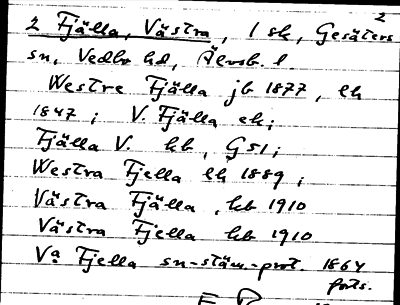 2
2 Fjälla, Västra, 1 sk, Gesäters
sn, Vedbo hd, Älvsb. l.
Westre Fjälla jb 1877, lk
1847; V. Fjälla ek;
Fjälla V. kb, G51;
Westra Fjella lk 1889;
Västra Fjälla, kb 1910
Västra Fjella kb 1910
Va Fjella sn-stäm.-prot. 1864
forts.